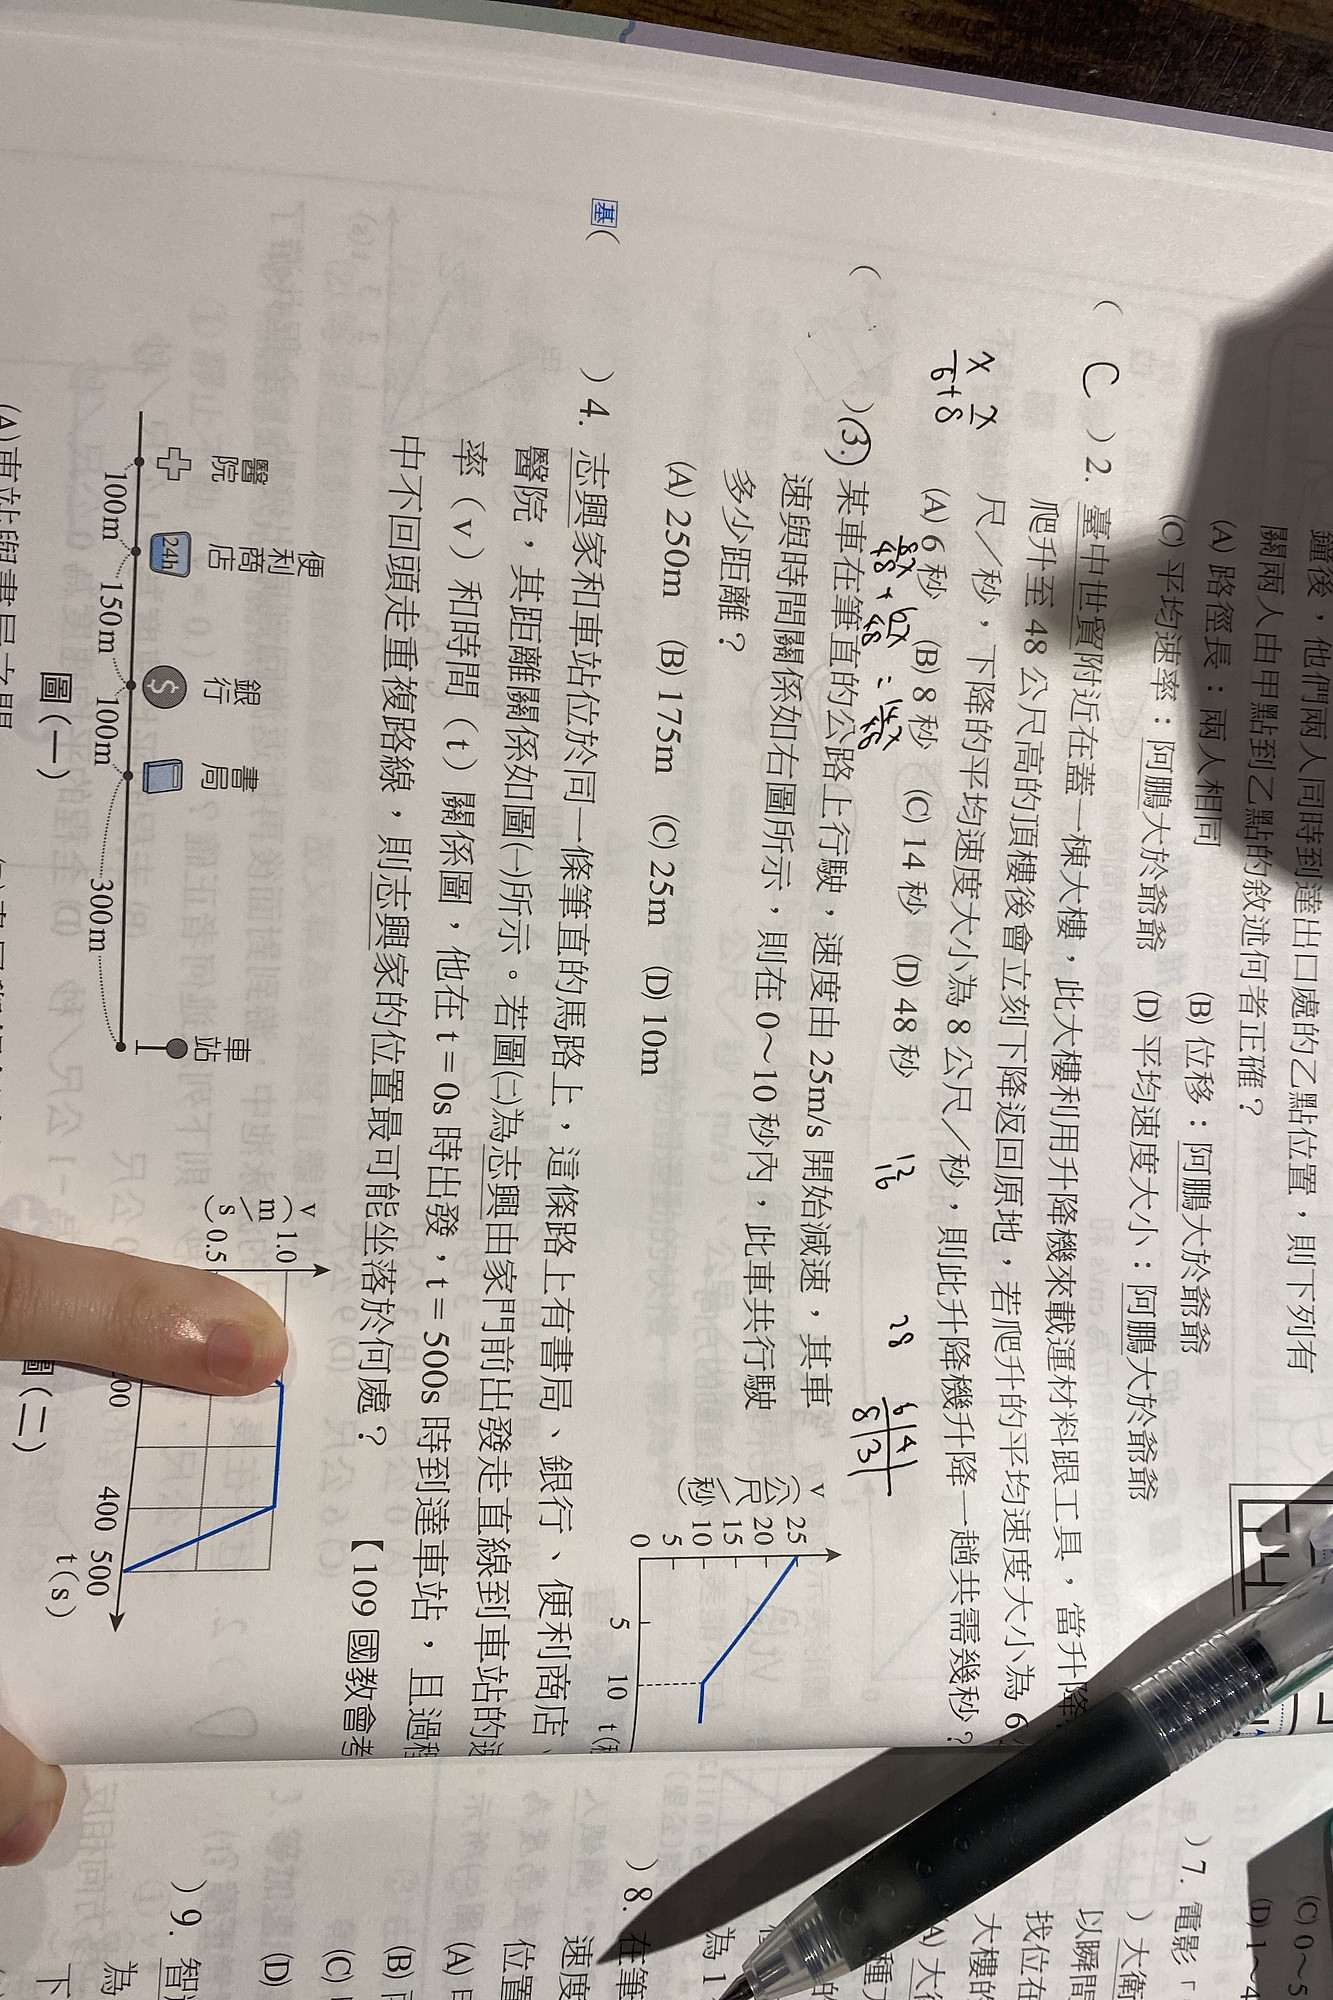 鐘後，他們兩人同時到達出口處的乙點位置，則下列有
關兩人由甲點到乙點的敘述何者正確？
(A) 路徑長：兩人相同
(B) 位移：阿鵬大於爺爺
(C) 平均速率：阿鵬大於爺爺
(D) 平均速度大小：阿鵬大於爺爺
( C )2. 臺中世貿附近在蓋一棟大樓，此大樓利用升降機來載運材料跟工具，當升降
爬升至 48 公尺高的頂樓後會立刻下降返回原地，若爬升的平均速度大小為 6
尺／秒，下降的平均速度大小為 8 公尺／秒，則此升降機升降一趟共需幾秒？
(A) 6 秒 (B) 8 秒 (C) 14 秒 (D) 48 秒
x/6 + x/8
8x/48 + 6x/48 = 14x/48
28
6 8
4 3
( )(3.) 某車在筆直的公路上行駛，速度由 25m/s 開始減速，其車
速與時間關係如右圖所示，則在 0～10 秒內，此車共行駛
多少距離？
(A) 250m (B) 175m (C) 25m (D) 10m
v
(公尺／秒)
25
20
15
10
5
0
5 10 t
基( )4. 志興家和車站位於同一條筆直的馬路上，這條路上有書局、銀行、便利商店、
醫院，其距離關係如圖(一)所示。若圖(二)為志興由家門前出發走直線到車站的
率（v）和時間（t）關係圖，他在 t = 0s 時出發，t = 500s 時到達車站，且過程
中不回頭走重複路線，則志興家的位置最可能坐落於何處？
【109 國教會考
醫院 便利商店 銀行 書局 車站
24h $
100m 150m 100m 300m
圖(一)
v
(m/s)
1.0
0.5
00 400 500
t(s)
圖(二)
(A) 車站與書局之間
(C) 0～5
(D) 1～4
)7. 電影「
)大衛
以瞬間
找位在
大樓的
(A) 大
)8. 在筆
速度
位置
(A)
(B)
(C)
(D)
)9. 智
為
下